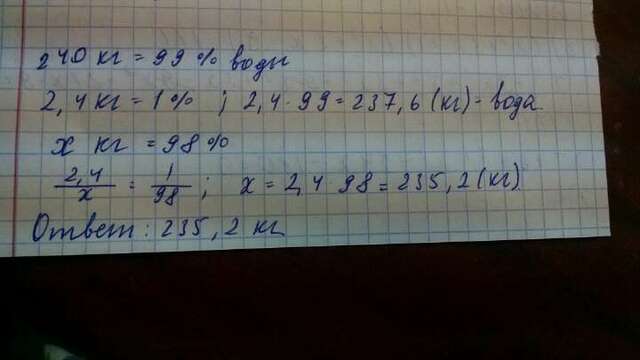 240 кг = 99 % воды
2,4 кг = 1 % ; 2,4 · 99 = 237,6 (кг) - вода.
х кг = 98 %
2,4/х = 1/98 ; х = 2,4 · 98 = 235,2 (кг)
Ответ : 235,2 кг